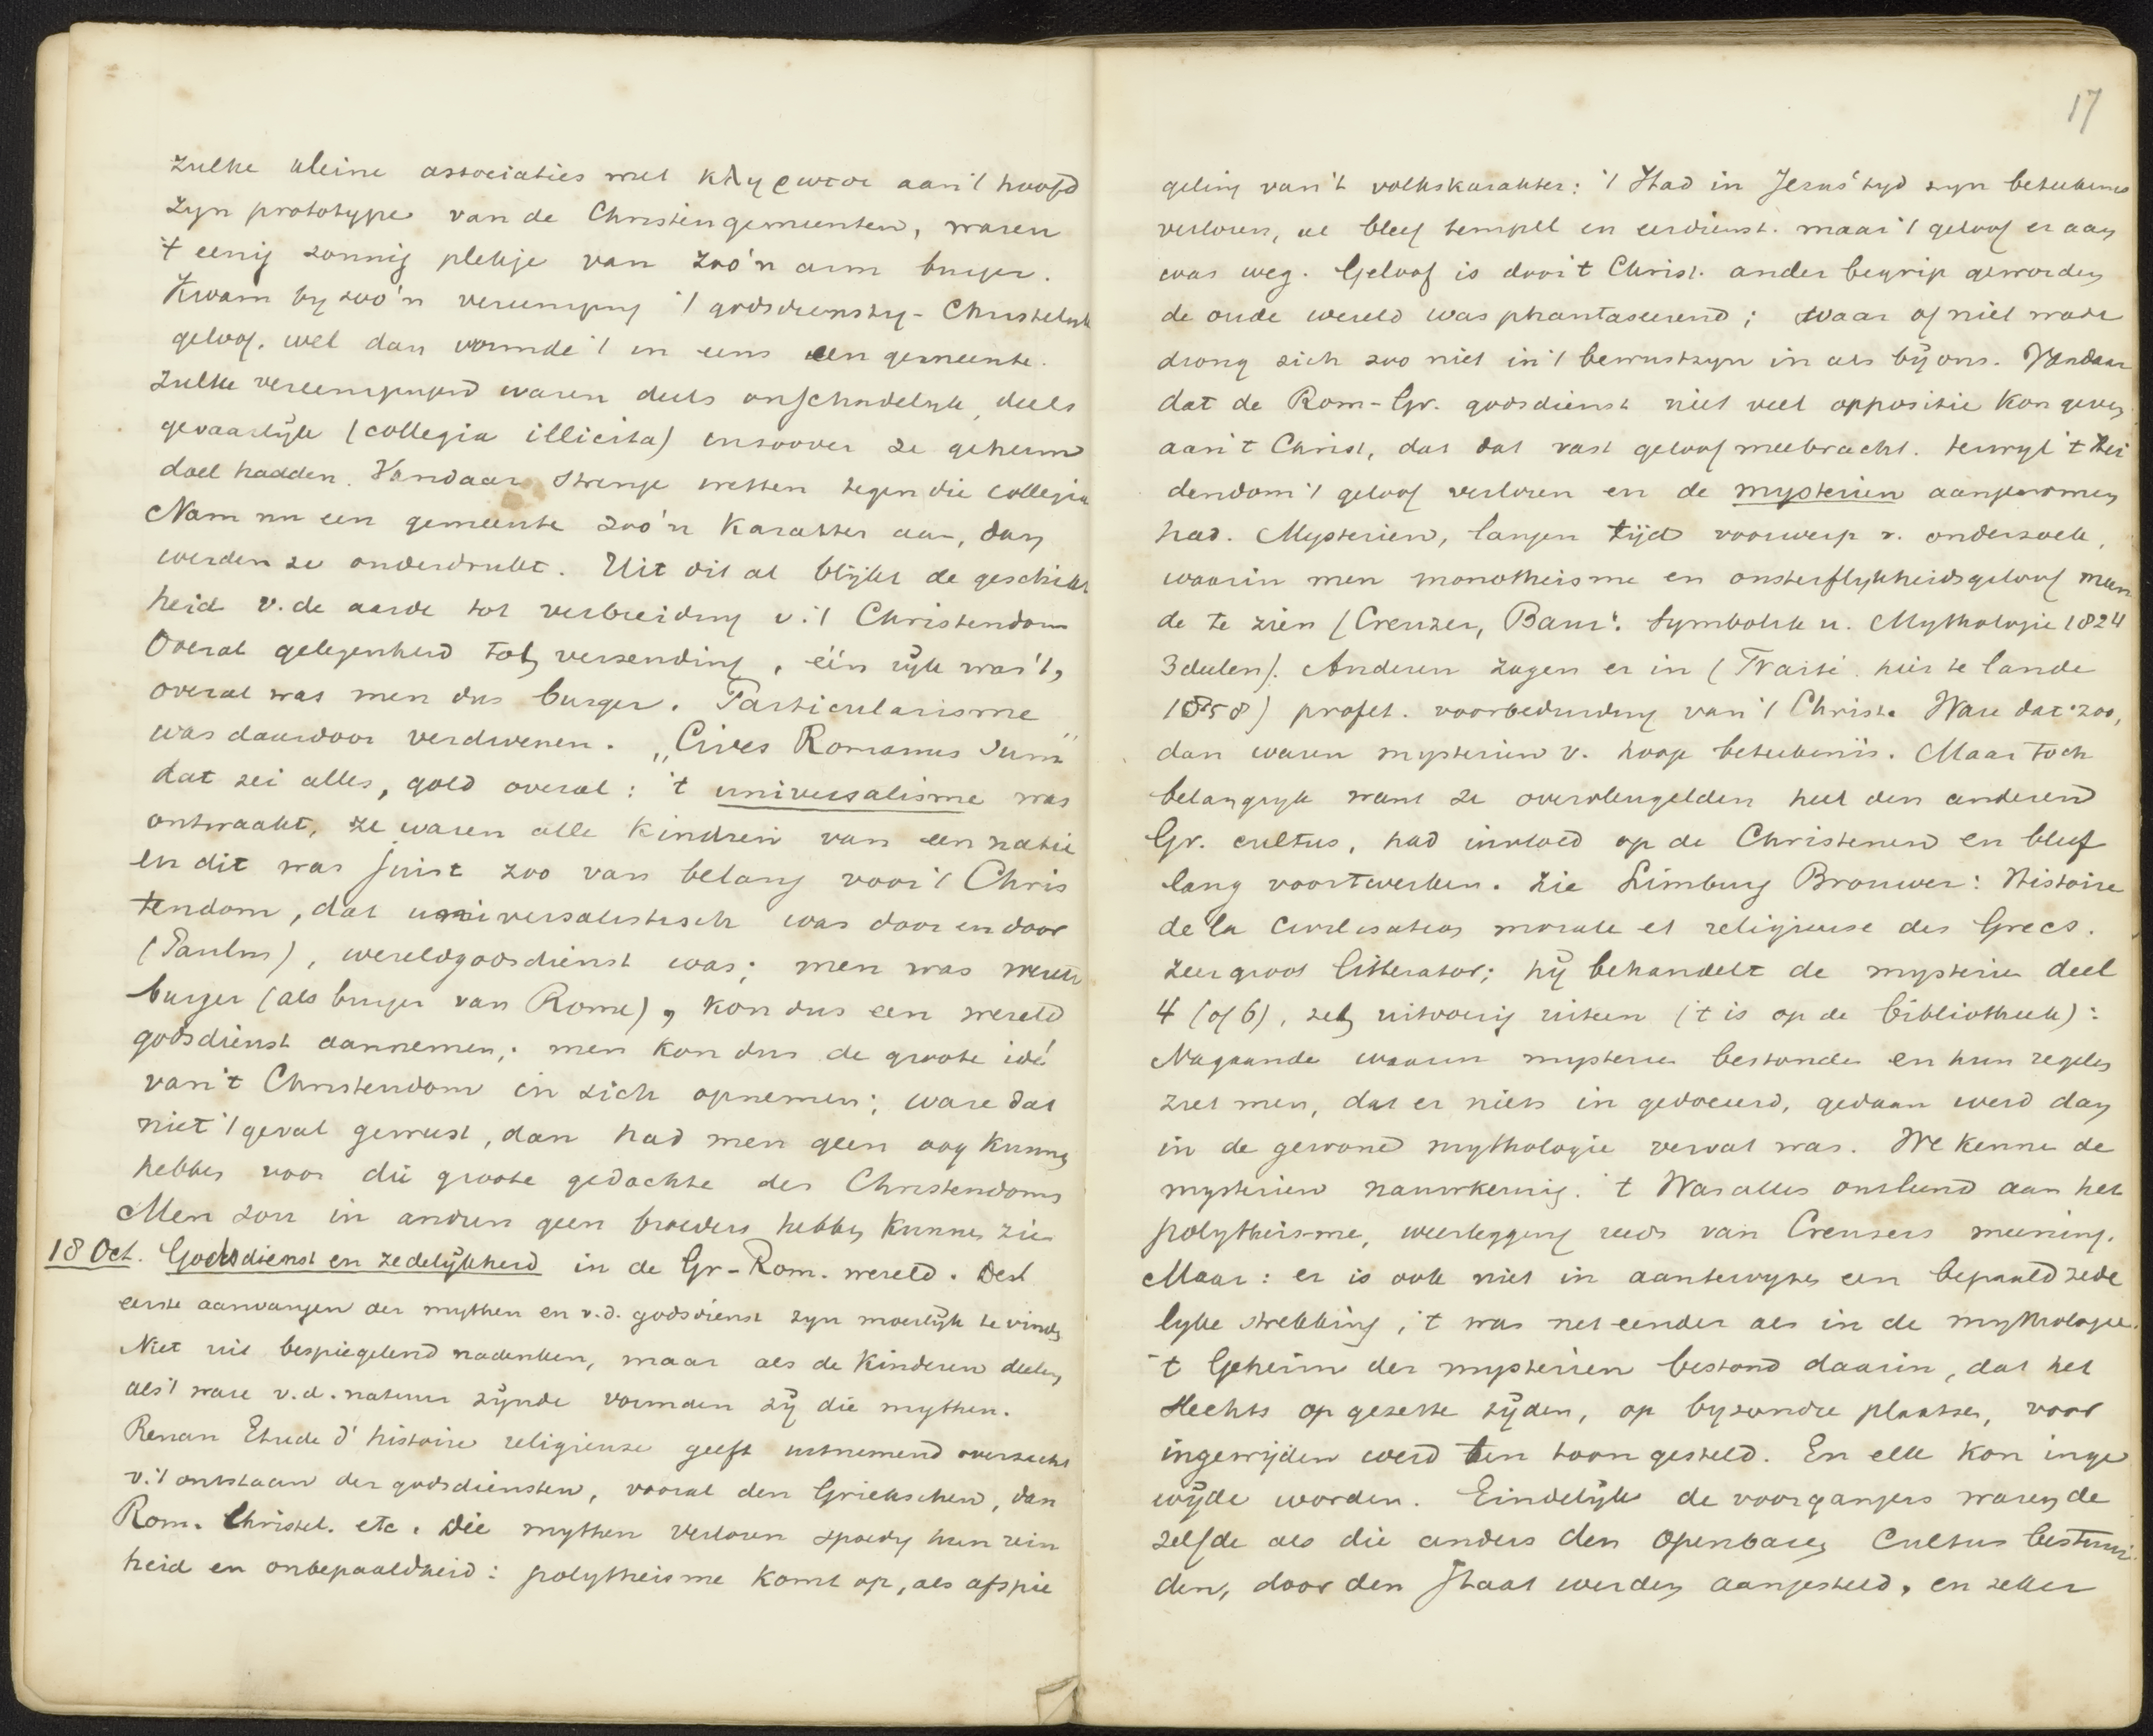 zulke kleine associaties met κληρωτοι aan 't hoofd
zyn prototype van de Christengemeenten, waren
't eenig zonnig plekje van zoo'n arm burger.
Kwam by zoo'n vereeniging 't godsdienstig-Christelyk
geloof, wel dan vormde 't in eens een gemeente.
Zulke vereenigingen waren deels onschadelyk, deels
gevaarlyk (collegia illicita) inzoover ze geheim
doel hadden. Vandaar strenge wetten tegen die collegia
Nam nu een gemeente zoo'n karakter aan, dan
werden ze onderdrukt. Uit dit al blijkt de geschikt
heid v. de aarde tot verbreiding v. 't Christendom
Overal gelegenheid tot verzending, één ryk was 't,
overal was men dus burger. Particularisme
was daardoor verdwenen. „Cives Romanus sum"
dat zei alles, gold overal: 't universalisme was
ontwaakt, ze waren alle kindren van een natie
en dit was juist zoo van belang voor 't Chris
tendom, dat universalistisch was door en door
(Paulus), wereldgodsdienst was; men was wereld
burger (als burger van Rome), kon dus een wereld
godsdienst aannemen; men kon dus de groote idé
van 't Christendom in zich opnemen; ware dat
niet 't geval geweest, dan had men geen oog kunnen
hebben voor die groote gedachte des Christendoms
Men zou in andren geen broeders hebben kunnen zien
18 Oct. Godsdienst en zedelykheid in de Gr-Rom. wereld. De
eerste aanvangen der mythen en v.d. godsdienst zyn moeilyk te vinden
Niet uit bespiegelend nadenken, maar als de kinderen
als 't ware v.d. natuur zynde vormden zy die mythen.
Renan Etude d'histoire religieuse geeft uitnemend overzicht
v. 't ontstaan der godsdiensten, vooral den Griekschen, dan
Rom. Christel. etc. Die mythen verloren spoedig hun rein
heid en onbepaaldheid: polytheisme komt op, als afspie
17
geling van 't volkskarakter: 't Had in Jezus' tyd zyn beteekenis
verloren, al bleef tempel en eerdienst. maar 't geloof er aan
was weg. Geloof is door 't Christ. ander begrip geworden
de oude wereld was phantaseerend; waar of niet waar
drong zich zoo niet in 't bewustzyn in als by ons. Vandaar
dat de Rom-Gr. godsdienst niet veel oppositie kon geven
aan 't Christ, dat dat vast geloof meebracht. terwyl 't Hei
dendom 't geloof verloren en de mysterien aangenomen
had. Mysterien, langen tijd voorwerp v. onderzoek,
waarin men monotheisme en onsterflykheidsgeloof meen
de te zien (Creuzer, Baur: Symbolik u. Mythologie 1824
3 deelen). Anderen zagen er in ( hier te lande
1858) profet. voorbeduiding van 't Christ. Ware dat zoo,
dan waren mysterien v. hooge beteekenis. Maar toch
belangryk want ze overvleugelden heel den anderen
Gr. cultus, had invloed op de Christenen en bleef
lang voortwerken. Zie Limburg Brouwer: Histoire
de la civilisation morale et religieuse des Grecs.
zeer groot litterator; hy behandelt de mysterien deel
4 (of 6), zet uitvoerig uiteen ('t is op de bibliotheek):
Nagaande waarin mysterien bestonden en hun regels
ziet men, dat er niets in gedoceerd, gedaan werd dan
in de gewone mythologie vervat was. We kennen de
mysterien nauwkeurig. 't Was alles ontleend aan het
polytheisme, weerlegging reeds van Creusers meening.
Maar: er is ook niet in aantewyzen een bepaald zede
lyke strekking; 't was net eender als in de mythologie.
't Geheim der mysterien bestond daarin, dat het
slechts op gezette tyden, op byzondre plaatsen, voor
ingewijden werd ten toon gesteld. En elk kon inge
wyde worden. Eindelyk de voorgangers waren de
zelfde als die anders den openbaren Cultus bestuur
den, door den staat werden aangesteld, en zeker